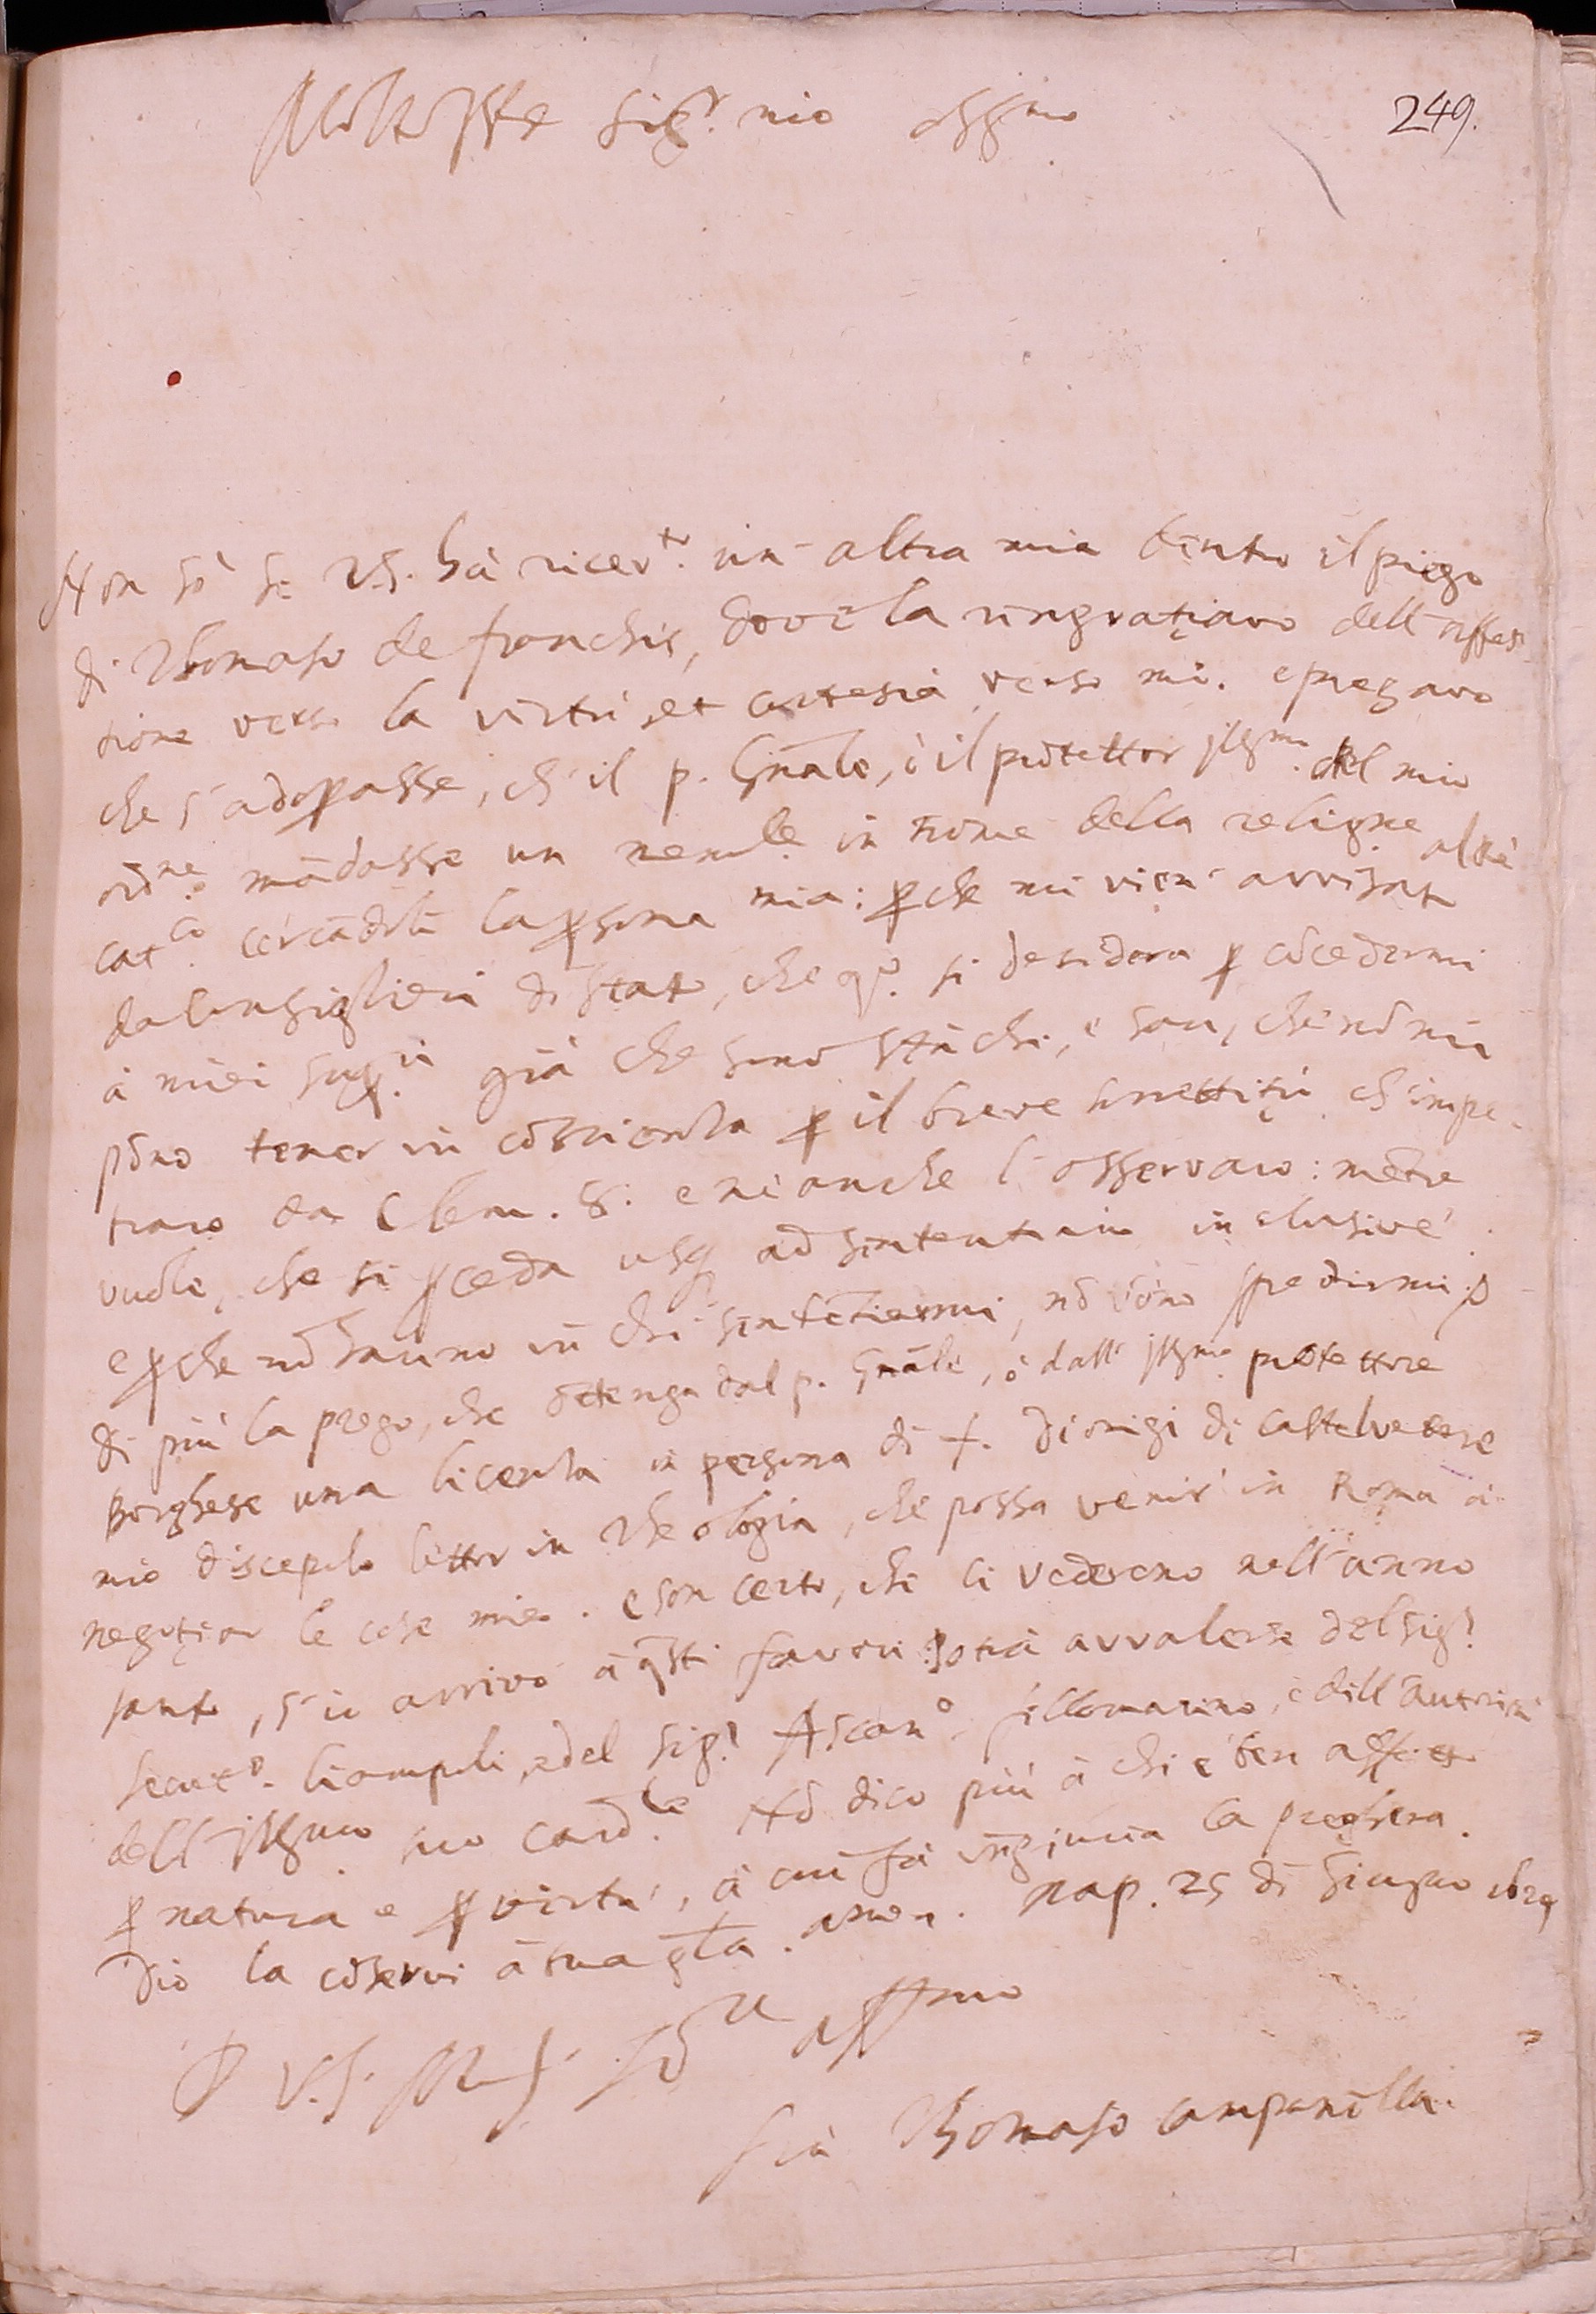 249.
Molto Ill.re sig.r mio oss.mo
Non sò se V.S. hà ricev.to un'altra mia dentro il piego
di Thomaso de franchis, dove la ringratiavo dell'affet-
tione verso la virtù, et cortesia verso mè. e pregavo
che s'adoprasse, ch'il p. Gñale, ò il protettor Ill.mo del mio
ord.ne mãdasse un in nome della religne al Rè
cat.co cercãdoli la p̱sona mia: p̱che mi vien' avvisato
da consiglieri di stato, che q.o si desidera p̱ cõcedermi
à miei sup.ri già che sono stãchi, e sãn, che nõ mi
põno tener in cõscienza p̱ il breve surrettitio, ch'impe-
traro da Clem. 8. e nè anche l'osservaro: mẽtre
vuole, che si p̱ceda usq ad sententiam inclusivè.
e p̱che nõ hanno in chè sentẽtiarmi, nõ põno spedirmi.
di più la prego, che ottenga dal p. Gñale, ò dall' Ill.mo protettore
Borghese una licenza in persona di f. Dionigi di Castelvetere
mio discepolo lettor in Theologia, che possa venir' in Roma à
negotiar le cose mie. e son certo, che ci vederemo nell'anno
santo, s'io arrivo à q̃sti favori. Potrà avvalerse del sig.r
secret.o Ciampoli, e del sig.r Ascan.o fillomarino, e dell'autorità
dell'Ill.mo suo Card.le Nõ dico più à chi è ben affetto
p̱ natura e p̱ virtù, à cui fà ingiuria la preghera.
Dio la cõservi à sua gl̃a. amen. Nap. 25 di Giugno
D V.S. M. I. s.re aff.mo
fra Thomaso Campanella.